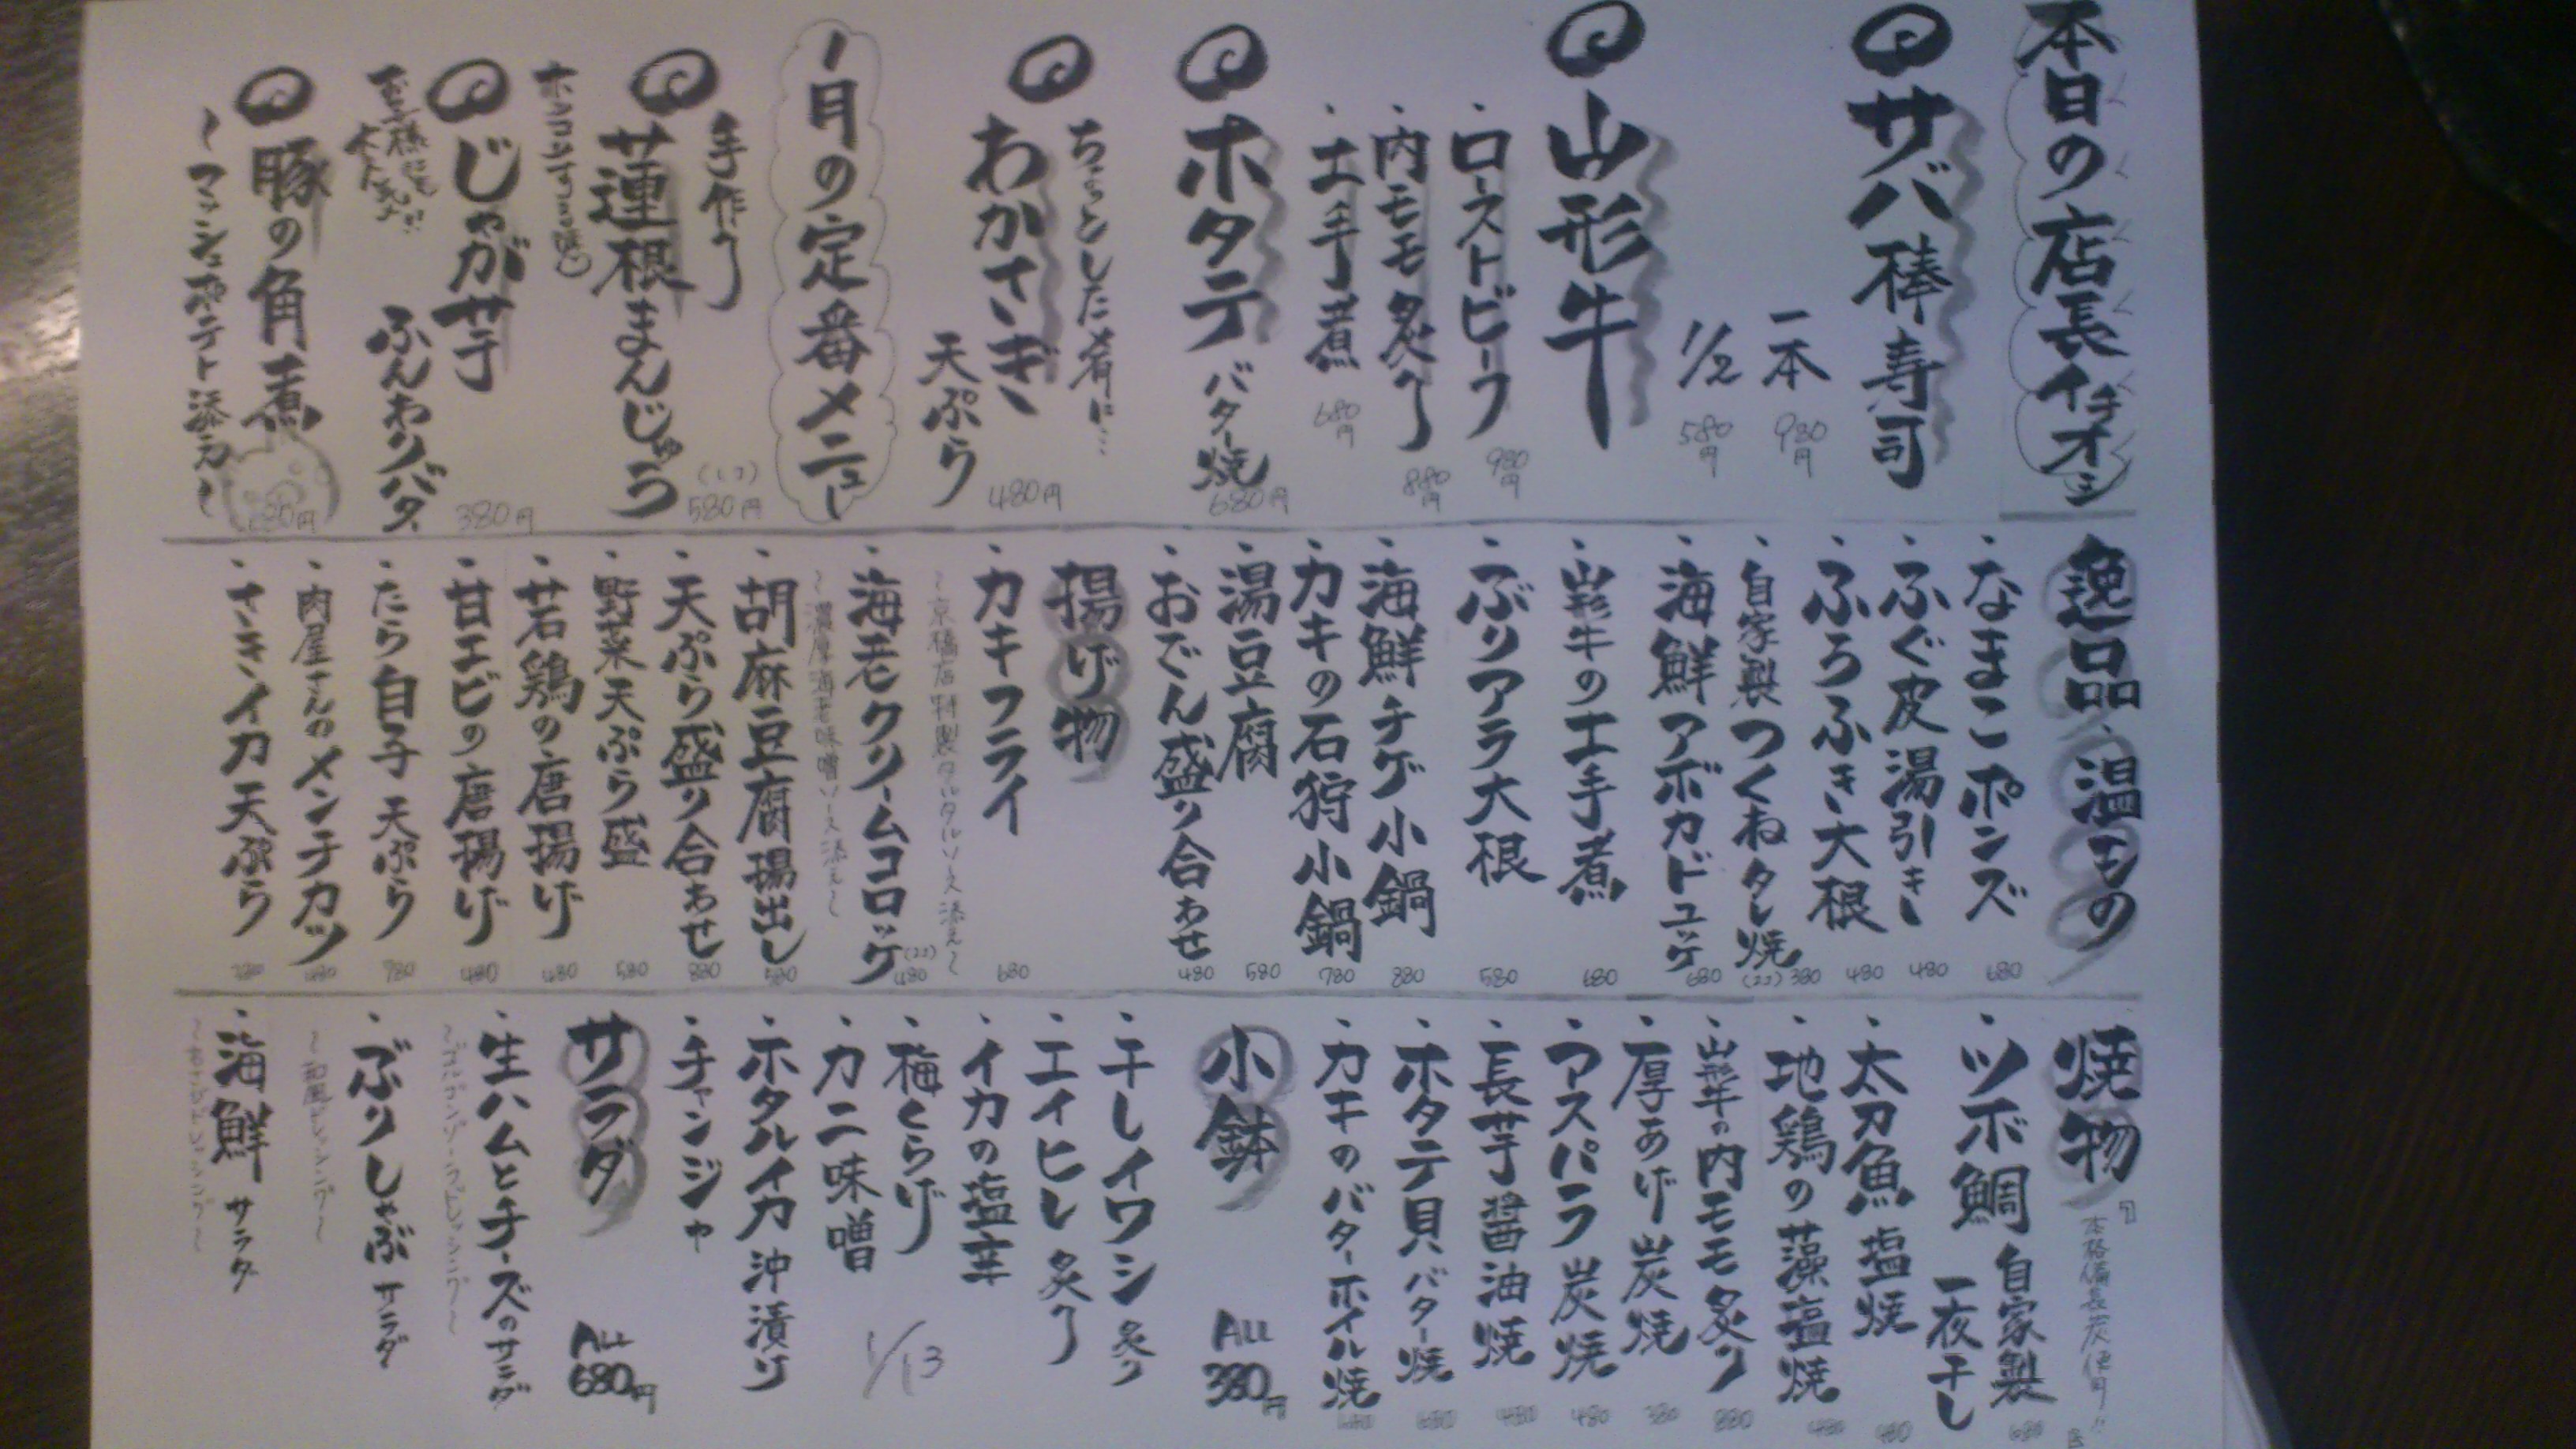 本日の店長イチオシ
サバ棒寿司
一本 980円
1/2 580円
山形牛
・ローストビーフ 980円
・内モモ炙り 880円
・土手煮 680円
ホタテ バター焼 680円
ちょっとした肴に…
わかさぎ 天ぷら 480円
1月の定番メニュー
手作り
蓮根まんじゅう (1コ) 580円
じゃが芋 ふんわりバター 380円
豚の角煮
〜マッシュポテト添え〜
逸品・温もの
・なまこポンズ 680
・ふぐ皮湯引き 480
・ふろふき大根 480
・自家製つくねタレ焼 (2コ) 380
・海鮮アボカドユッケ 680
・山形牛の土手煮 680
・ぶりアラ大根 580
・海鮮チゲ小鍋 880
・カキの石狩小鍋 780
・湯豆腐 580
・おでん盛り合わせ 480
揚げ物
・カキフライ 680
〜京橋店特製タルタルソース添え〜
・海老クリームコロッケ (2コ) 480
〜濃厚海老味噌ソース添え〜
・胡麻豆腐揚出し 580
・天ぷら盛り合わせ 880
・野菜天ぷら盛 580
・若鶏の唐揚げ 480
・甘エビの唐揚げ 480
・たら白子天ぷら 780
・肉屋さんのメンチカツ 480
・さきイカ天ぷら 380
焼物
本格備長炭使用!!
・ツボ鯛 自家製一夜干し 680
・太刀魚塩焼 480
・地鶏の藻塩焼 480
・山形牛の内モモ炙り 880
・厚あげ炭焼 380
・アスパラ炭焼 480
・長芋醤油焼 480
・ホタテ貝バター焼 680
・カキのバターホイル焼 680
小鉢 ALL 380円
・干しイワシ炙り
・エイヒレ炙り
・イカの塩辛
・梅くらげ
・カニ味噌
・ホタルイカ沖漬け
・チャンジャ
1/13
サラダ ALL 680円
・生ハムとチーズのサラダ
・ぶりしゃぶサラダ
〜和風ドレッシング〜
・海鮮サラダ